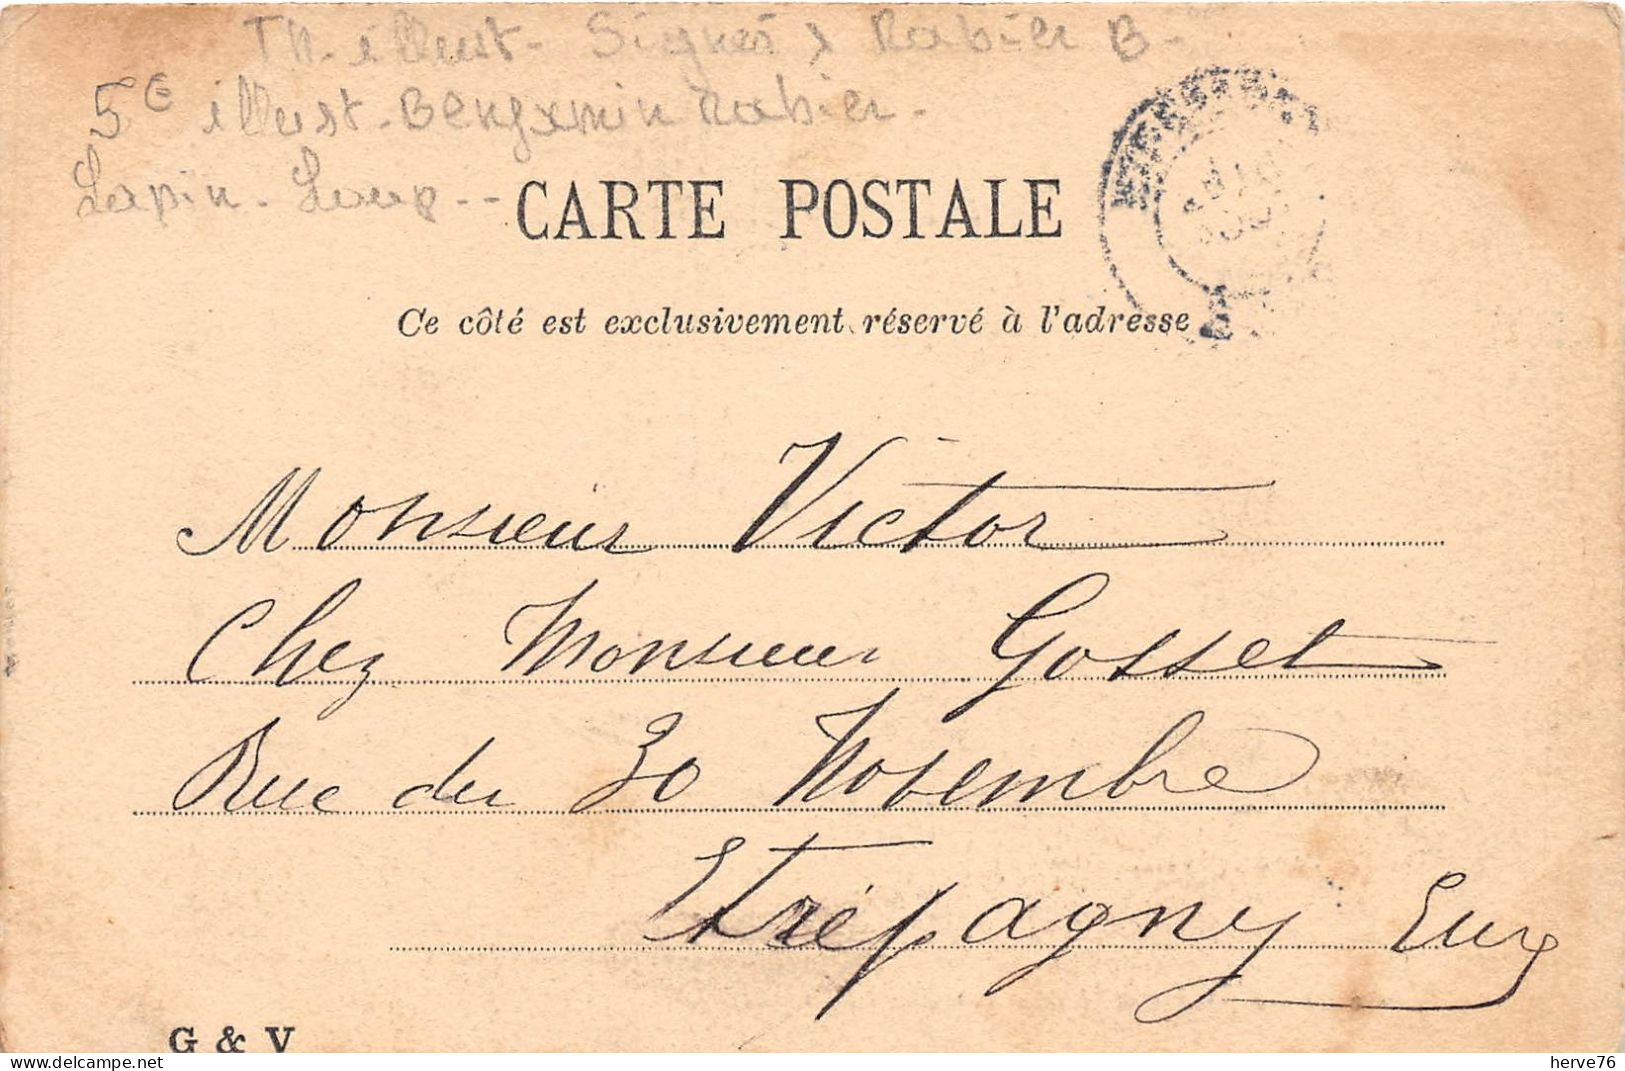 Th. illust - Signés x Rabier B -
5€ illust - Bengamin Rabier -
Lapin - Loup --
CARTE POSTALE
Ce côté est exclusivement réservé à l'adresse
Monsieur Victor
Chez Monsieur Gosset
Rue du 30 Novembre
Etrépagny Eure
G & V
herve76